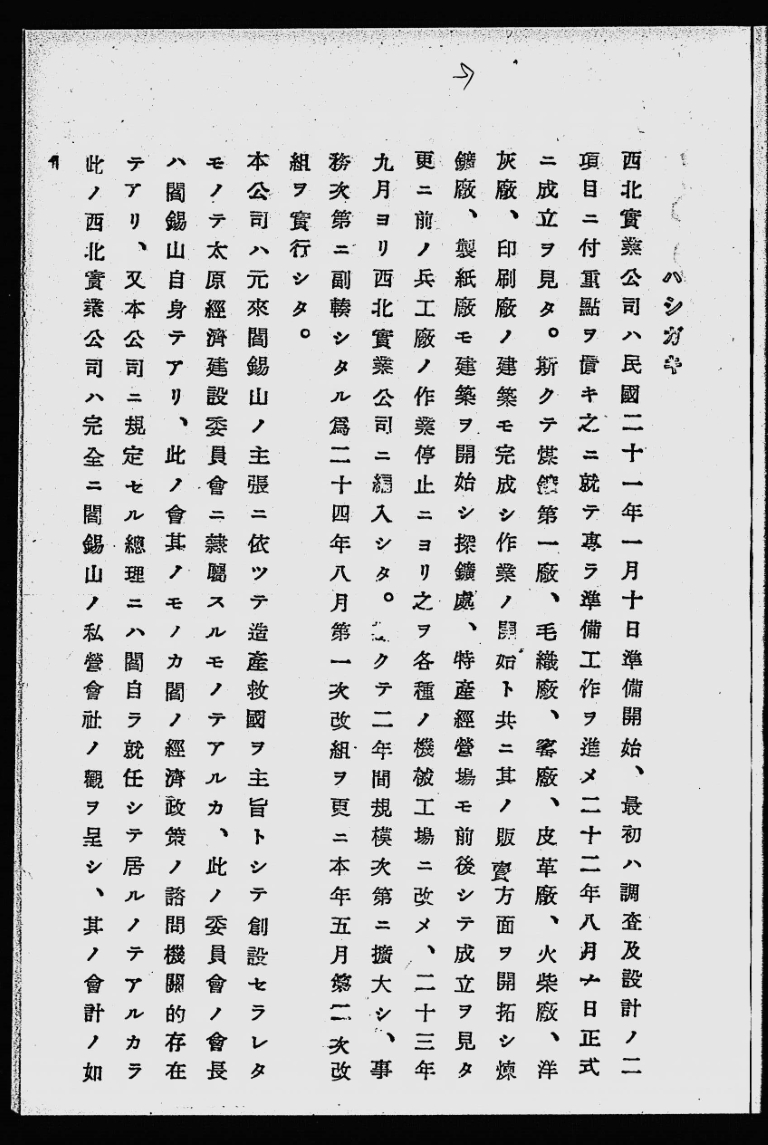 ハシガキ
西北實業公司ハ民國二十一年一月十日準備開始、最初ハ調査及設計ノ二
項目ニ付重點ヲ置キ之ニ就テ專ラ準備工作ヲ進メ二十二年八月一日正式
ニ成立ヲ見タ。斯クテ煤鑛第一廠、毛織廠、窰廠、皮革廠、火柴廠、洋
灰廠、印刷廠ノ建築モ完成シ作業ノ開始ト共ニ其ノ販賣方面ヲ開拓シ煉
鑛廠、製紙廠モ建築ヲ開始シ探鑛處、特産經營場モ前後シテ成立ヲ見タ
更ニ前ノ兵工廠ノ作業停止ニヨリ之ヲ各種ノ機械工場ニ改メ、二十三年
九月ヨリ西北實業公司ニ編入シタ。クテ二年間規模次第ニ擴大シ、事
務次第ニ副輳シタル爲二十四年八月第一次改組ヲ更ニ本年五月第二次改
組ヲ實行シタ。
本公司ハ元來閻錫山ノ主張ニ依ツテ造産救國ヲ主旨トシテ創設セラレタ
モノテ太原經濟建設委員會ニ隷屬スルモノテアルカ、此ノ委員會ノ會長
ハ閻錫山自身テアリ、此ノ會其ノモノカ閻ノ經濟政策ノ諮問機關的存在
テアリ、又本公司ニ規定セル總理ニハ閻自ラ就任シテ居ルノテアルカラ
此ノ西北實業公司ハ完全ニ閻錫山ノ私營會社ノ觀ヲ呈シ、其ノ會計ノ如